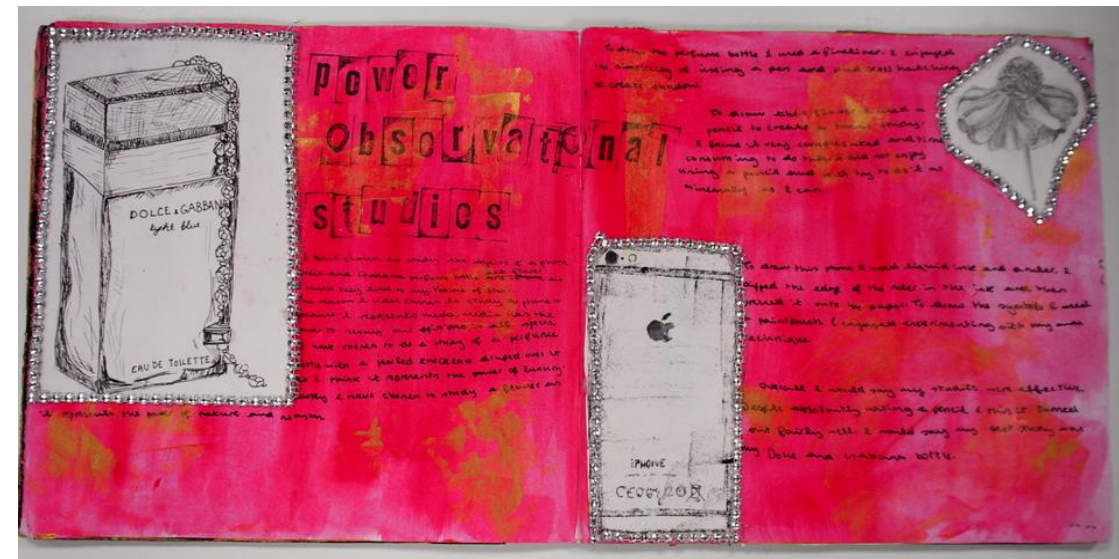 DOLCE & GABBANA
light blue
EAU DE TOILETTE
power
observational
studies
study the objects of a phone
perfume bottle
flower
they link to my theme of
The reason I have chosen to study a phone is
it represents media. media has the
to our opinions in all
have chosen to do a study of a perfume
bottle with a necklace draped over it
I think it represents the power of luxury.
I have chosen to study a flower as
it represents the power of nature and
To draw the perfume bottle I used a fineliner. I enjoyed
the simplicity of using a pen and used cross hatching
to create shadow.
To draw this flower I used a
pencil to create a tonal study.
I found it very complicated and time
consuming to do this. I did not enjoy
using a pencil and will try to do it as
minimally as I can.
To draw this phone I used liquid ink and a ruler. I
dipped the edge of the ruler in the ink and then
pressed it onto the paper. To draw the symbols I used
a paintbrush. I enjoyed experimenting with my own
technique.
iPHONE
Overall I would say my studies were effective.
Despite absolutely hating a pencil I think it turned
out fairly well. I would say my best study was
my Dolce and Gabbana bottle.